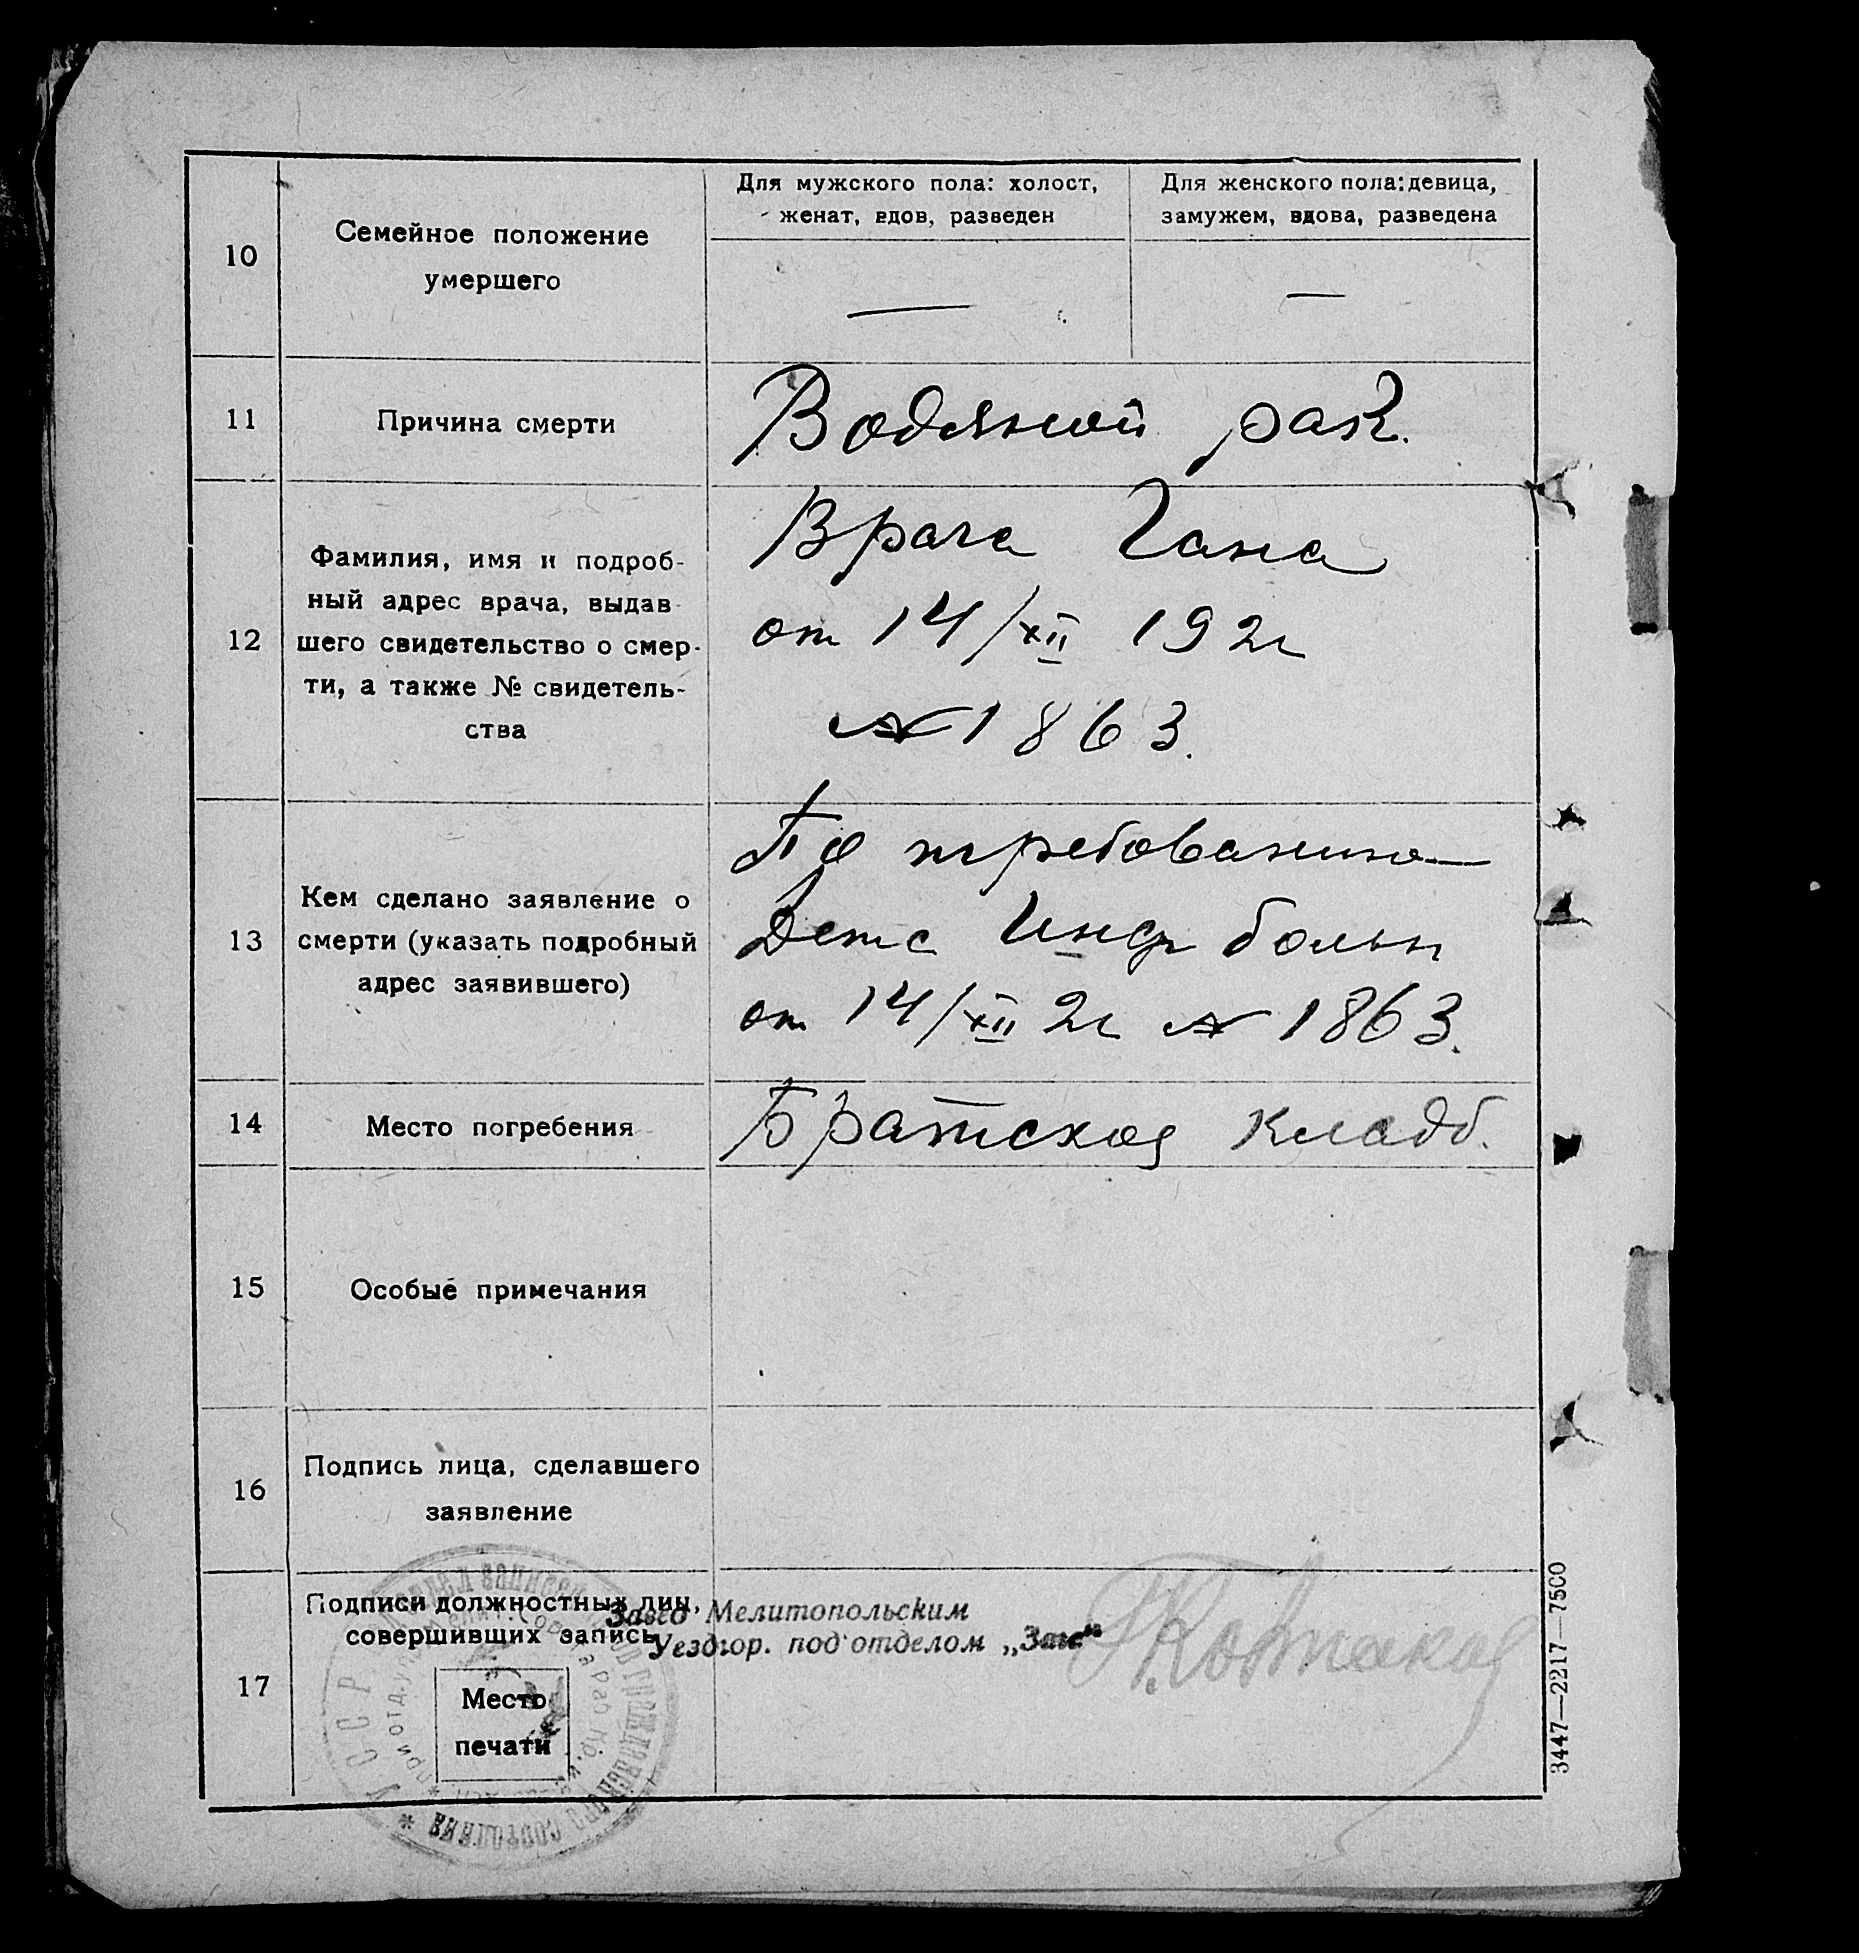 10
Семейное положение
умершего
Для мужского пола: холост,
женат, вдов, разведен
Для женского пола: девица,
замужем, вдова, разведена
—
—
11
Причина смерти
Водяной рак.
12
Фамилия, имя и подроб-
ный адрес врача, выдав-
шего свидетельство о смер-
ти, а также № свидетель-
ства
Врача Гана
от 14/XII 192г
№ 1863.
13
Кем сделано заявление о
смерти (указать подробный
адрес заявившего)
По требованию
Детс Инф больн
от 14/XII 2г № 1863.
14
Место погребения
Братское кладб.
15
Особые примечания
16
Подпись лица, сделавшего
заявление
17
Подписи должностных лиц,
совершивших запись
Место
печати
Завед Мелитопольским
Уездгор. подотделом „Загс“
УССР
записей гражданского состояния
3447—2217—7500